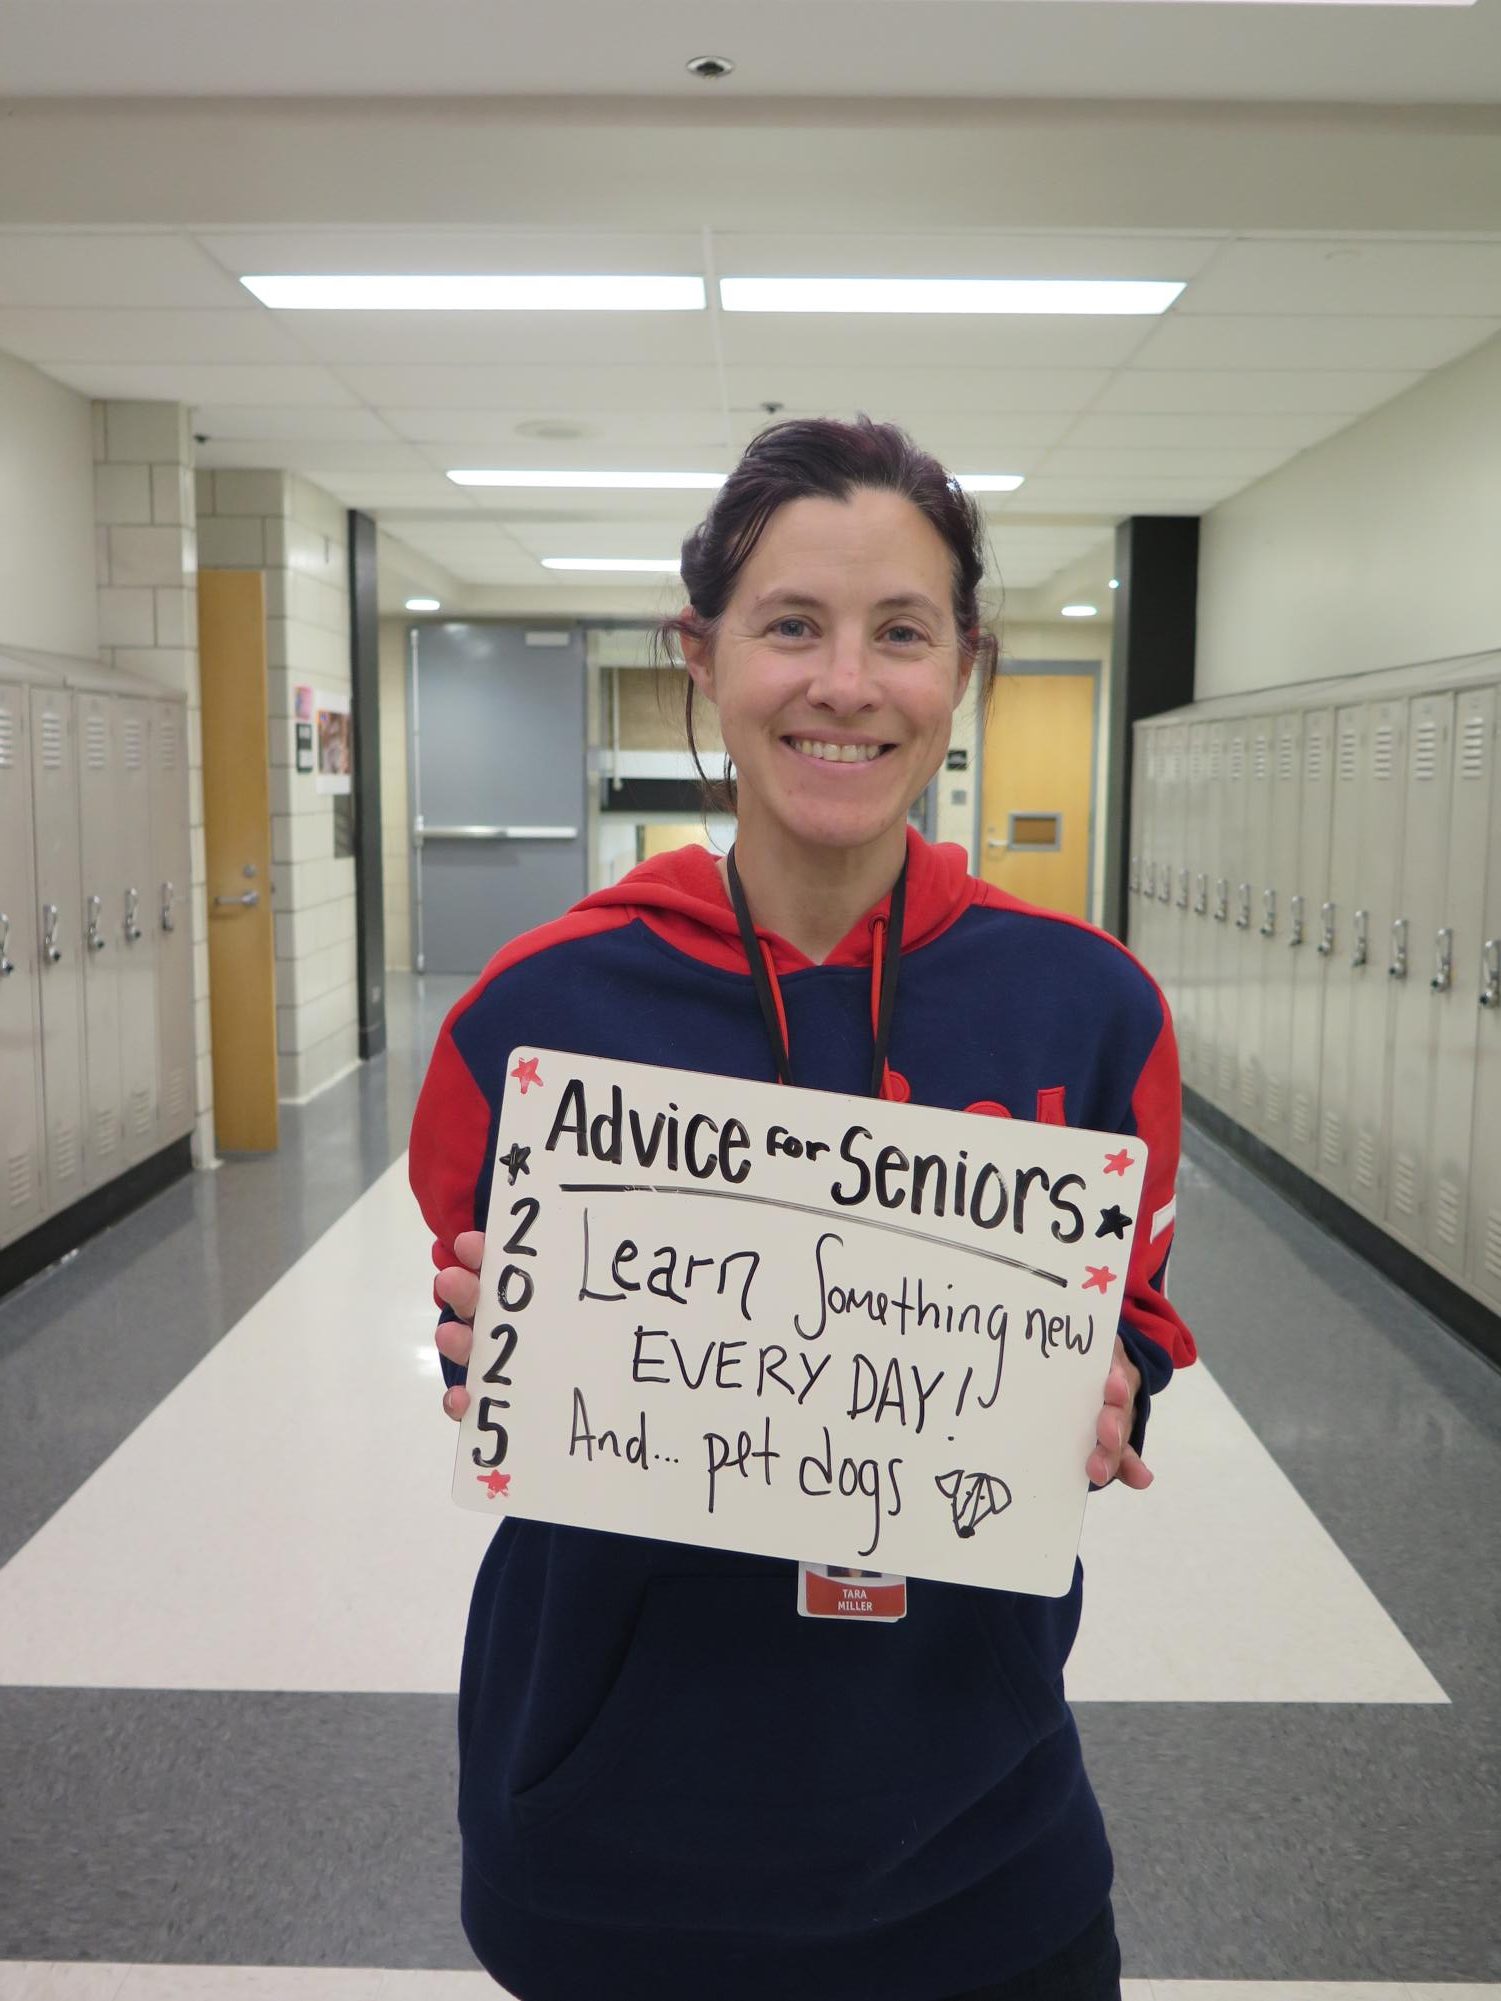 Advice for Seniors
2025
Learn Something new
EVERY DAY!
And... pet dogs
TARA
MILLER